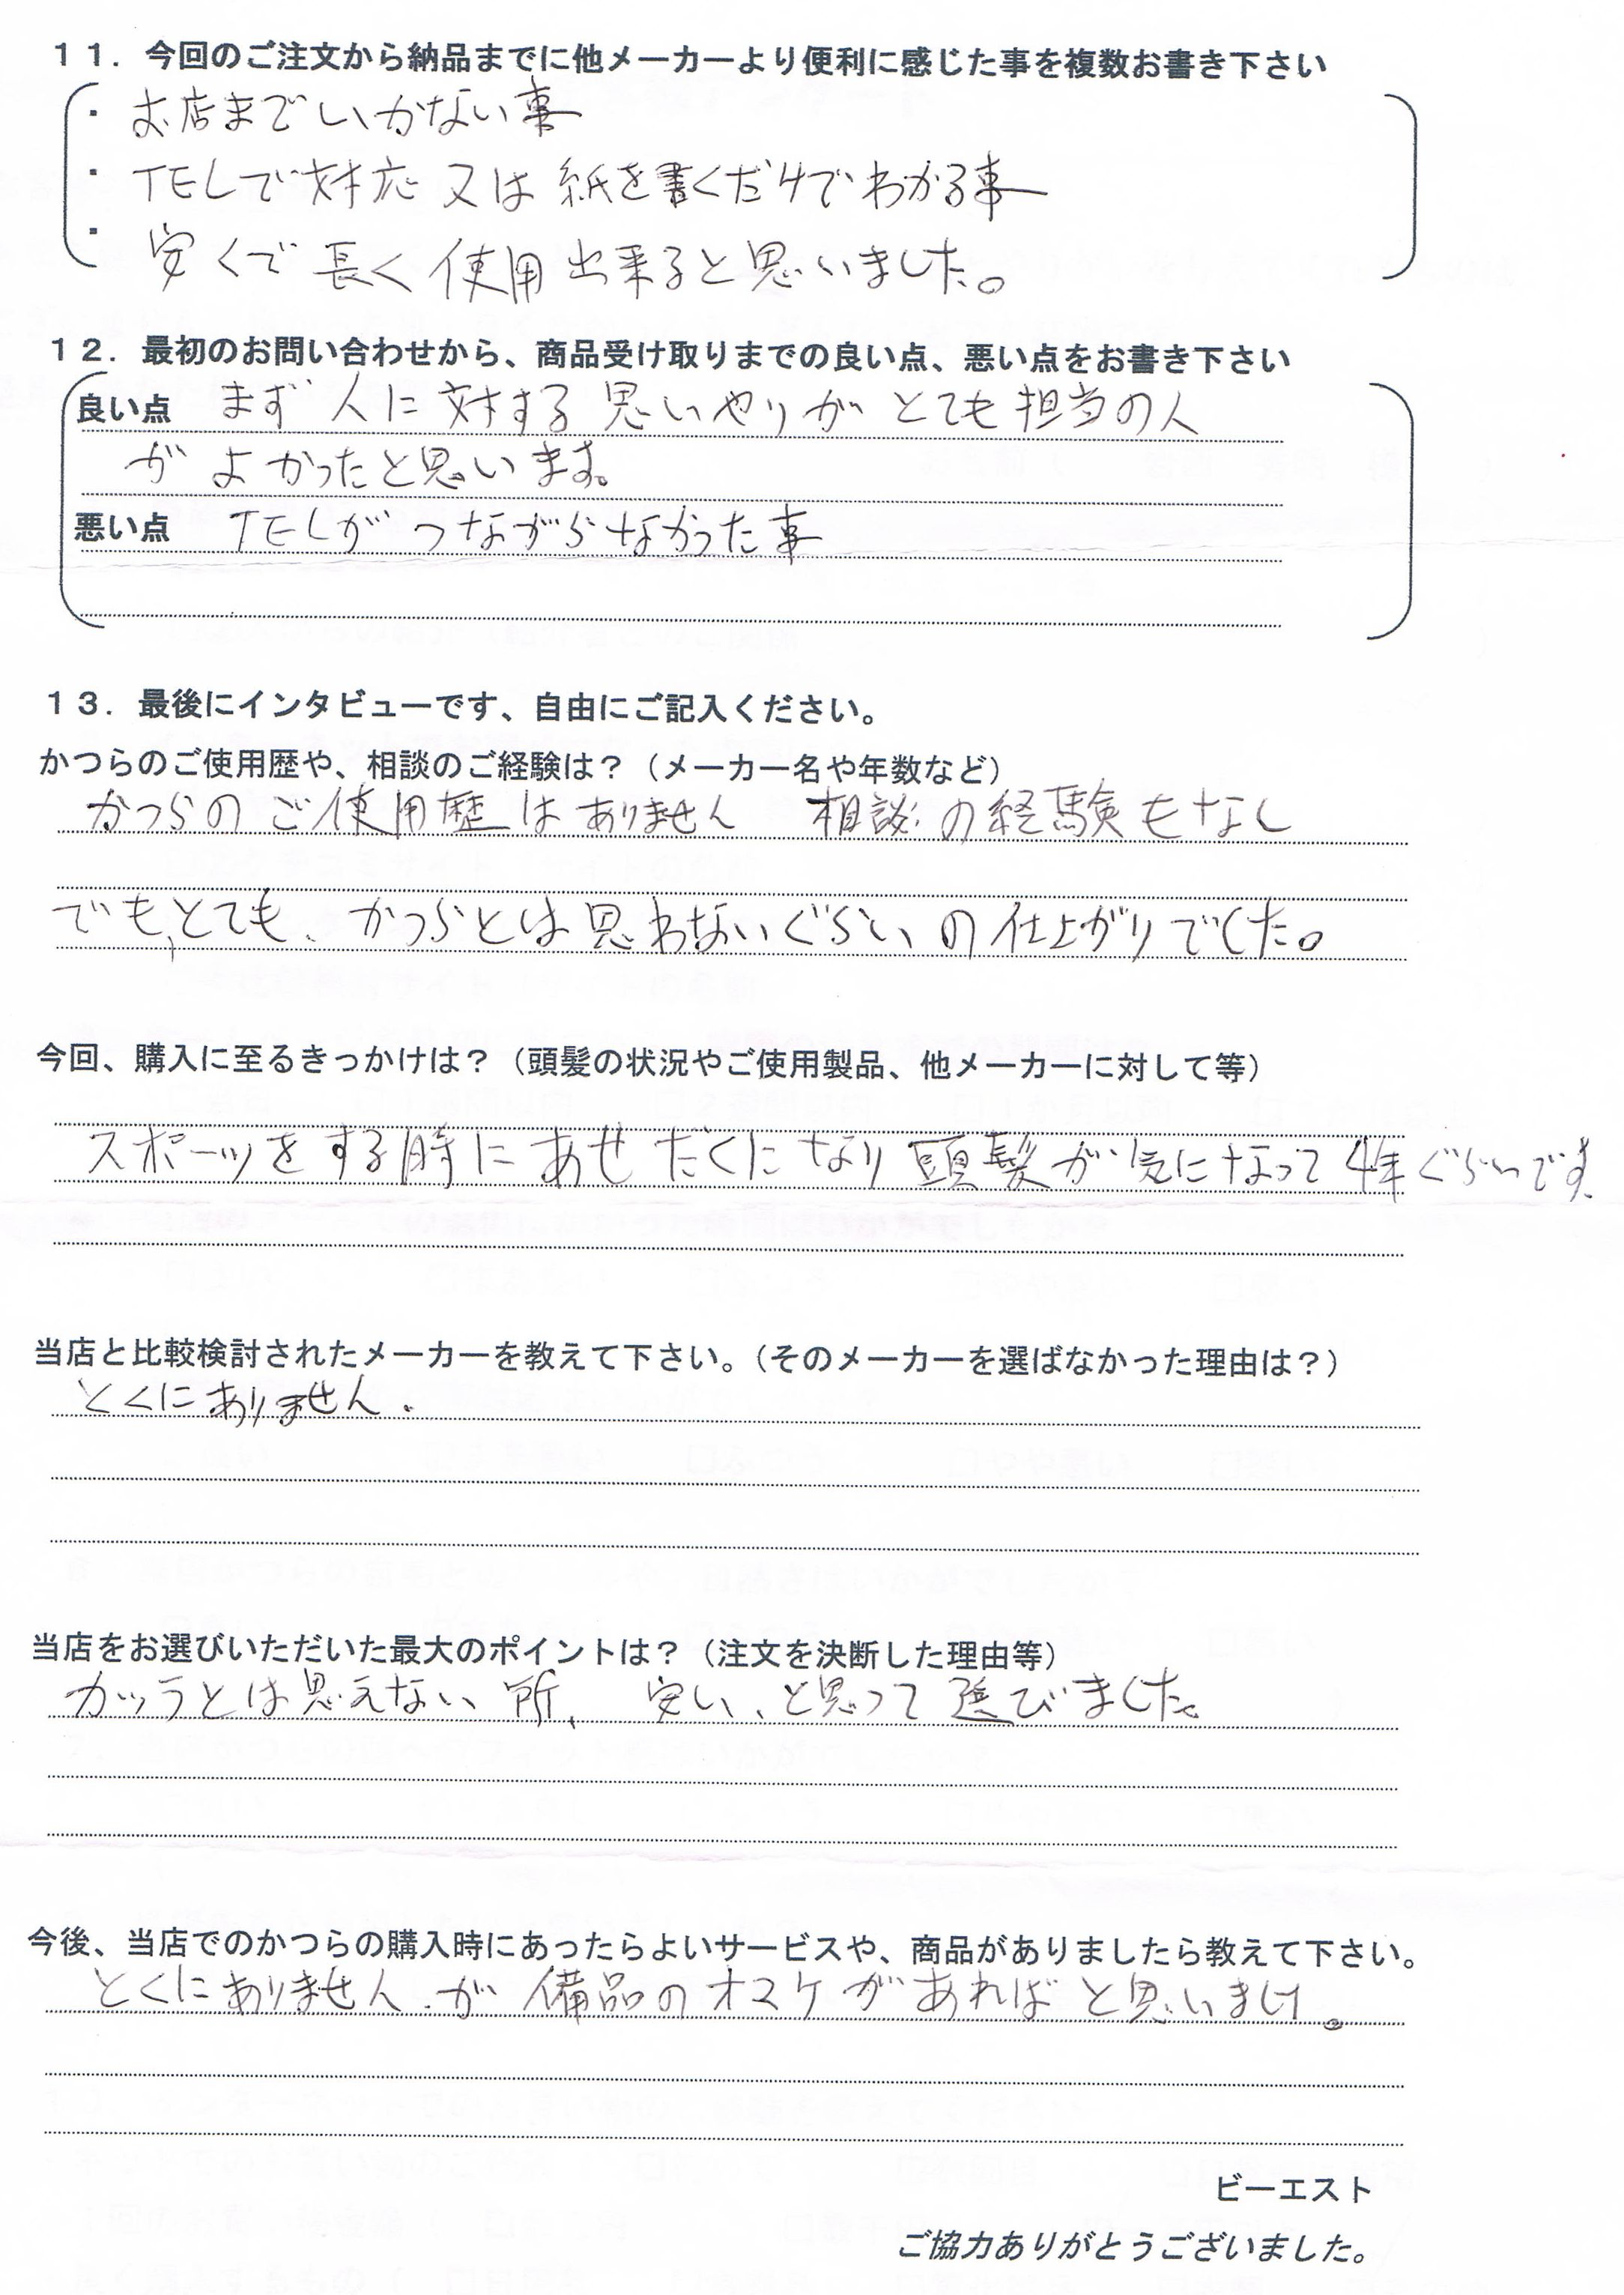 11．今回のご注文から納品までに他メーカーより便利に感じた事を複数お書き下さい
・お店までいかない事
・TELで対応 又は 紙を書くだけでわかる事
・安くで 長く 使用 出来ると思いました。
12．最初のお問い合わせから、商品受け取りまでの良い点、悪い点をお書き下さい
良い点 まず 人に対する 思いやりが とても担当の人
が よかったと思います。
悪い点 TELが つながらなかった事
13．最後にインタビューです、自由にご記入ください。
かつらのご使用歴や、相談のご経験は？（メーカー名や年数など）
かつらの ご使用歴はありません 相談の経験もなし
でも、とても、かつらとは思わないぐらいの仕上がりでした。
今回、購入に至るきっかけは？（頭髪の状況やご使用製品、他メーカーに対して等）
スポーツをする時にあせだくになり頭髪が気になって4年ぐらいです
当店と比較検討されたメーカーを教えて下さい。（そのメーカーを選ばなかった理由は？）
とくにありません.
当店をお選びいただいた最大のポイントは？（注文を決断した理由等）
カツラとは思えない所、 安い、と思って選びました。
今後、当店でのかつらの購入時にあったらよいサービスや、商品がありましたら教えて下さい。
とくにありません.が 備品のオマケがあればと思います。
ビーエスト
ご協力ありがとうございました。